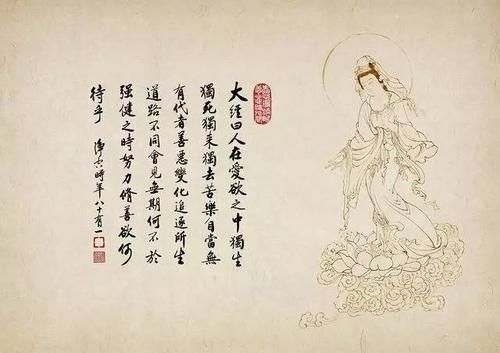 大經曰人在愛欲之中獨生
獨死獨来獨去苦樂自當無
有代者善惡變化追逐所生
道路不同會見無期何不於
强健之時努力脩善欲何
待乎 淨空時年八十有一